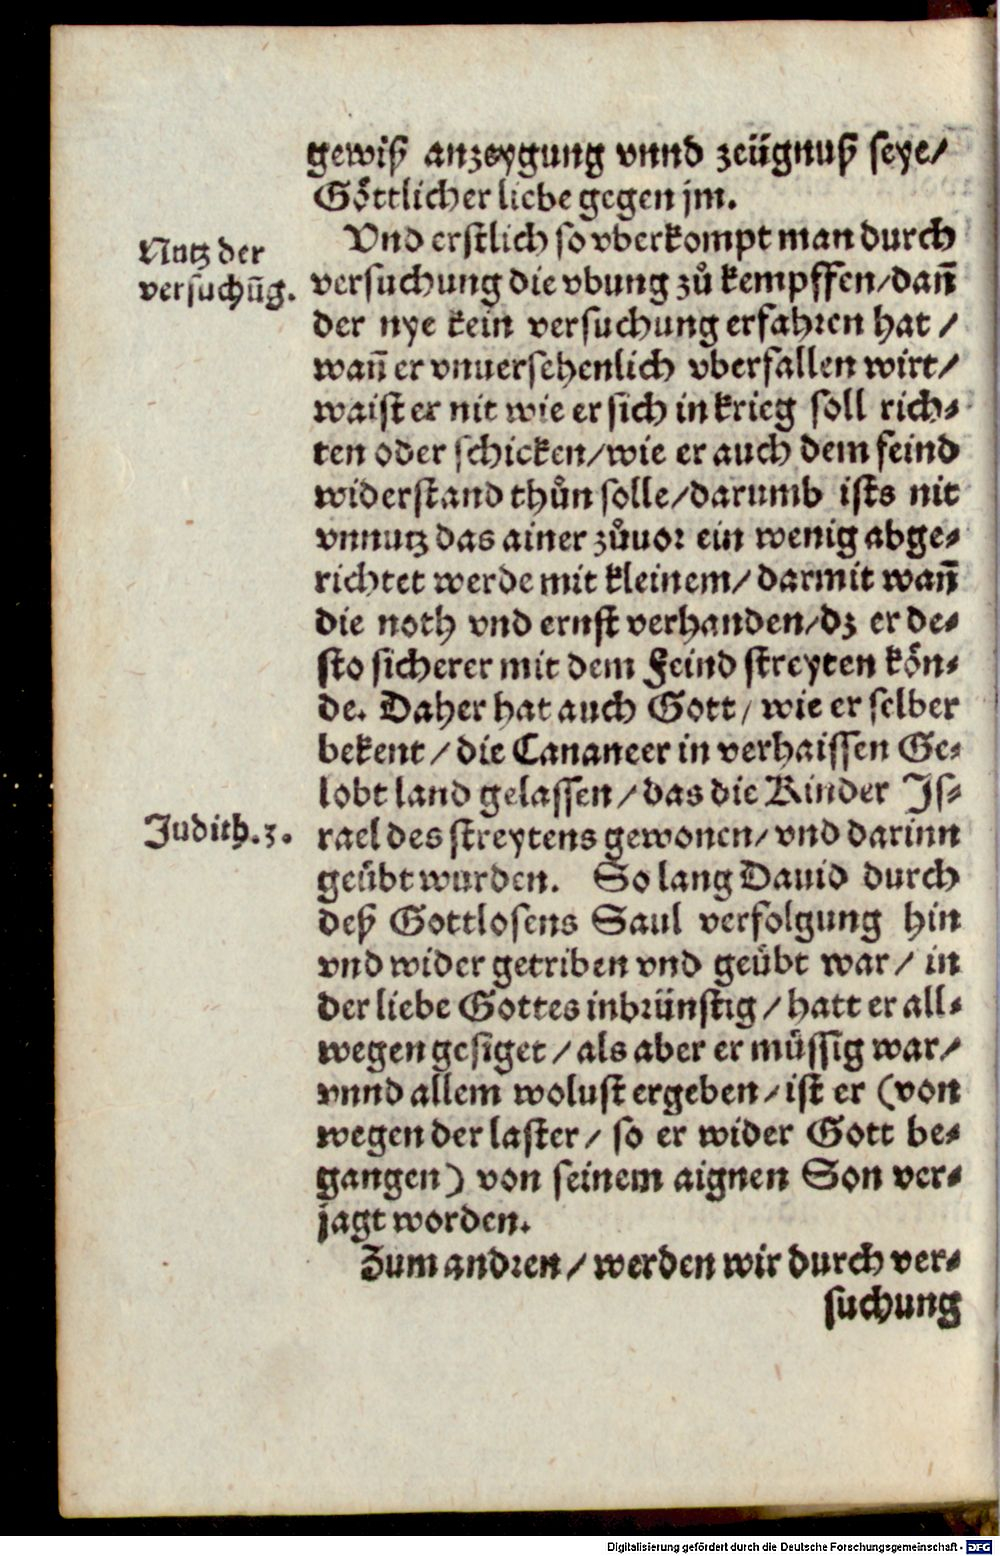 gewiß anzeygung vnnd zeügnuß seye/
Göttlicher liebe gegen jm.
Nutz der
versuchũg.
Vnd erstlich so vberkompt man durch
versuchung die vbung zů kempffen/dañ
der nye kein versuchung erfahren hat /
wañ er vnuersehenlich vberfallen wirt/
waist er nit wie er sich in krieg soll rich⸗
ten oder schicken/wie er auch dem feind
widerstand thůn solle/darumb ists nit
vnnutz das ainer zůuor ein wenig abge⸗
richtet werde mit kleinem/darmit wañ
die noth vnd ernst verhanden/dz er de⸗
sto sicherer mit dem Feind streyten kön⸗
de. Daher hat auch Gott/wie er selber
bekent/die Cananeer in verhaissen Ge⸗
lobt land gelassen/das die Kinder Js⸗
Judith.3.
rael des streytens gewonen/vnd darinn
geübt wurden. So lang Dauid durch
deß Gottlosens Saul verfolgung hin
vnd wider getriben vnd geübt war/ in
der liebe Gottes inbrünstig/hatt er all⸗
wegen gesiget/als aber er müssig war/
vnnd allem wolust ergeben/ist er (von
wegen der laster/ so er wider Gott be⸗
gangen) von seinem aignen Son ver⸗
jagt worden.
Zum andren/werden wir durch ver⸗
suchung
Digitalisierung gefördert durch die Deutsche Forschungsgemeinschaft - DFG